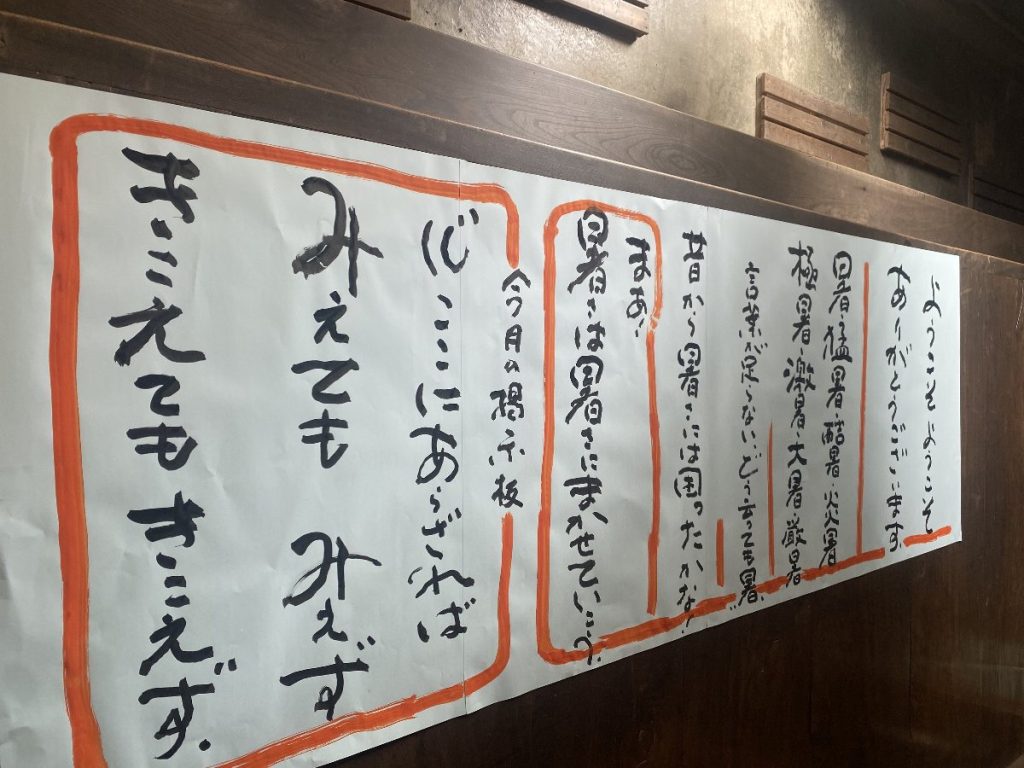 ようこそようこそ
ありがとうございます。
暑・猛暑・酷暑・炎暑
極暑・激暑・大暑・厳暑
言葉が足らない。どう言っても暑。
昔から暑さには困ったかな!
まあ、
暑さは暑さにまかせていこう。
今月の掲示板
心ここにあらざれば
みえても みえず
きこえても きこえず。